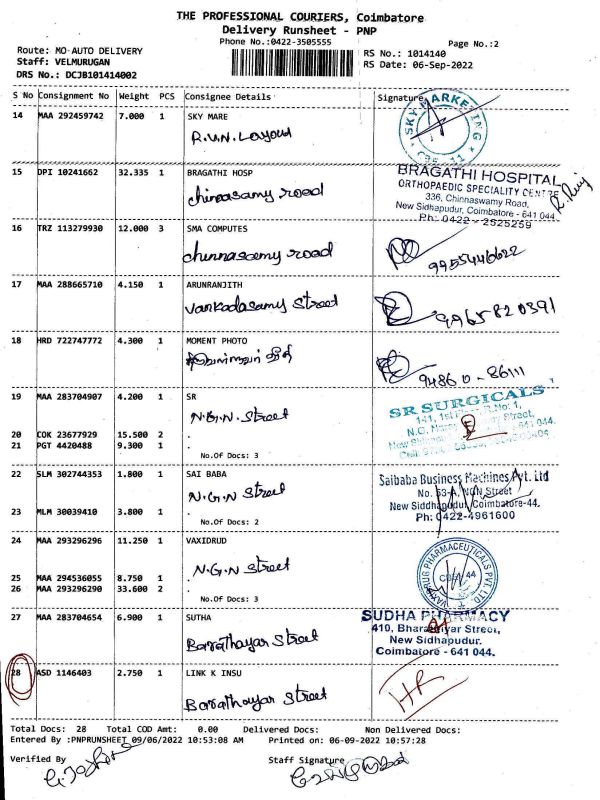 THE PROFESSIONAL COURIERS, Coimbatore
Delivery Runsheet - PNP
Phone No.:0422-3505555
Page No.:2
Route: MO-AUTO DELIVERY
Staff: VELMURUGAN
DRS No.: DCJB101414002
RS No.: 1014140
RS Date: 06-Sep-2022
S No Consignment No Weight PCS Consignee Details Signature
14 MAA 292459742 7.000 1 SKY MARE
R.V.N. Layout
SKY MARKETING
15 DPI 10241662 32.335 1 BRAGATHI HOSP
chinnasamy road
BRAGATHI HOSPITAL
ORTHOPAEDIC SPECIALITY CENTRE
336, Chinnaswamy Road,
New Sidhapudur, Coimbatore - 641 044.
Ph: 0422 - 2525259
16 TRZ 113279930 12.000 3 SMA COMPUTES
chinnasamy road
9955446622
17 MAA 288665710 4.150 1 ARUNRANJITH
Vankadasamy Street
9965820391
18 HRD 722747772 4.300 1 MOMENT PHOTO
94860-86111
19 MAA 283704907 4.200 1 SR
N.G.N. Street
SR SURGICALS
20 COK 23677929 15.500 2 .
21 PGT 4420488 9.300 1 .
No.Of Docs: 3
22 SLM 302744353 1.800 1 SAI BABA
N.G.N Street
Saibaba Business Machines Pvt. Ltd
No. 53-A, NGN Street
New Siddhapudur, Coimbatore-44.
Ph: 0422-4961600
23 MLM 30039410 3.800 1 .
No.Of Docs: 2
24 MAA 293296296 11.250 1 VAXIDRUD
N.G.N Street
VAXIDRUG PHARMACEUTICALS PVT LTD
25 MAA 294536055 8.750 1 .
26 MAA 293296290 33.600 2 .
No.Of Docs: 3
27 MAA 283704654 6.900 1 SUTHA
Barathayar Street
SUDHA PHARMACY
410, Bharathiyar Street,
New Sidhapudur.
Coimbatore - 641 044.
28 ASD 1146403 2.750 1 LINK K INSU
Barathayar Street
HR
Total Docs: 28 Total COD Amt: 0.00 Delivered Docs: Non Delivered Docs:
Entered By :PNPRUNSHEET 09/06/2022 10:53:08 AM Printed on: 06-09-2022 10:57:28
Verified By
Staff Signature